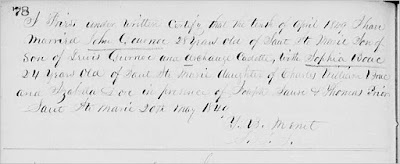 78
I This under written Certify that the tenth of April 1849 I have
Married John Gournoe 28 Years old of Saut Ste Marie Son of
Son of Lewis Gurnoe and Archange Cadotte, with Sophia Boae
24 Years old of Saut Ste Marie daughter of Charles William Boae
and Izabella Doe in presence of Joseph & Thomas
Saut Ste Marie 20th May 1849
J. B. Menet